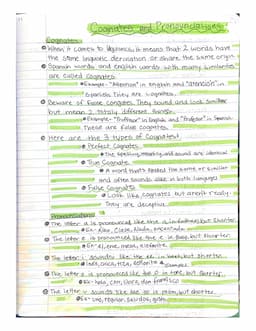 Cognates and Pronunciations
Cognates
When it comes to it means that 2 words have
the same linguistic derivation or share the same origin.
Spanish words and english words with many similarities
are called Cognates.
Example- "Attention" in English and "atención" in
Spanish. They are cognates.
Beware of false congates. They sound and look similar
but mean 2 totally different things.
Example- "Professor" in English and "Profesor" in Spanish.
These are false cognates.
Here are the 3 types of Cognates!
Perfect Cognates
The spelling, meaning, and sound are identical
True Cognate
A word that's spelled the same or similar
and often sounds alike in both languages
False Cognates
Look like cognates but aren't really
They are deceptive.
Pronunciations
The letter a is pronounced like the a in father, but shorter.
Ex- Clase, Nada,
The letter e is pronounced like the e in they, but shorter.
Ex- el, ene, mesa, elefante.
The letter i sounds like the ee in keet, but shorter.
The letter o is pronounced like the o in tone, but shorter.
Ex- hola, con, Doce, don francisco
The letter u sounds like the oo in room, but shorter.
Ex- uno, regular, saludos, gusto